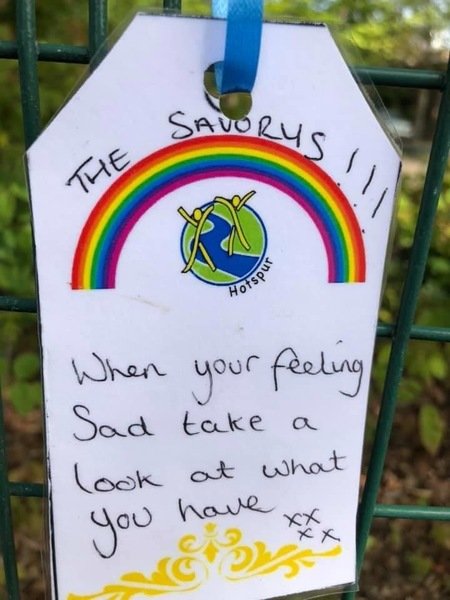 THE SAVORYS!!!
Hotspur
When your feeling
Sad take a
look at what
you have xx
xx